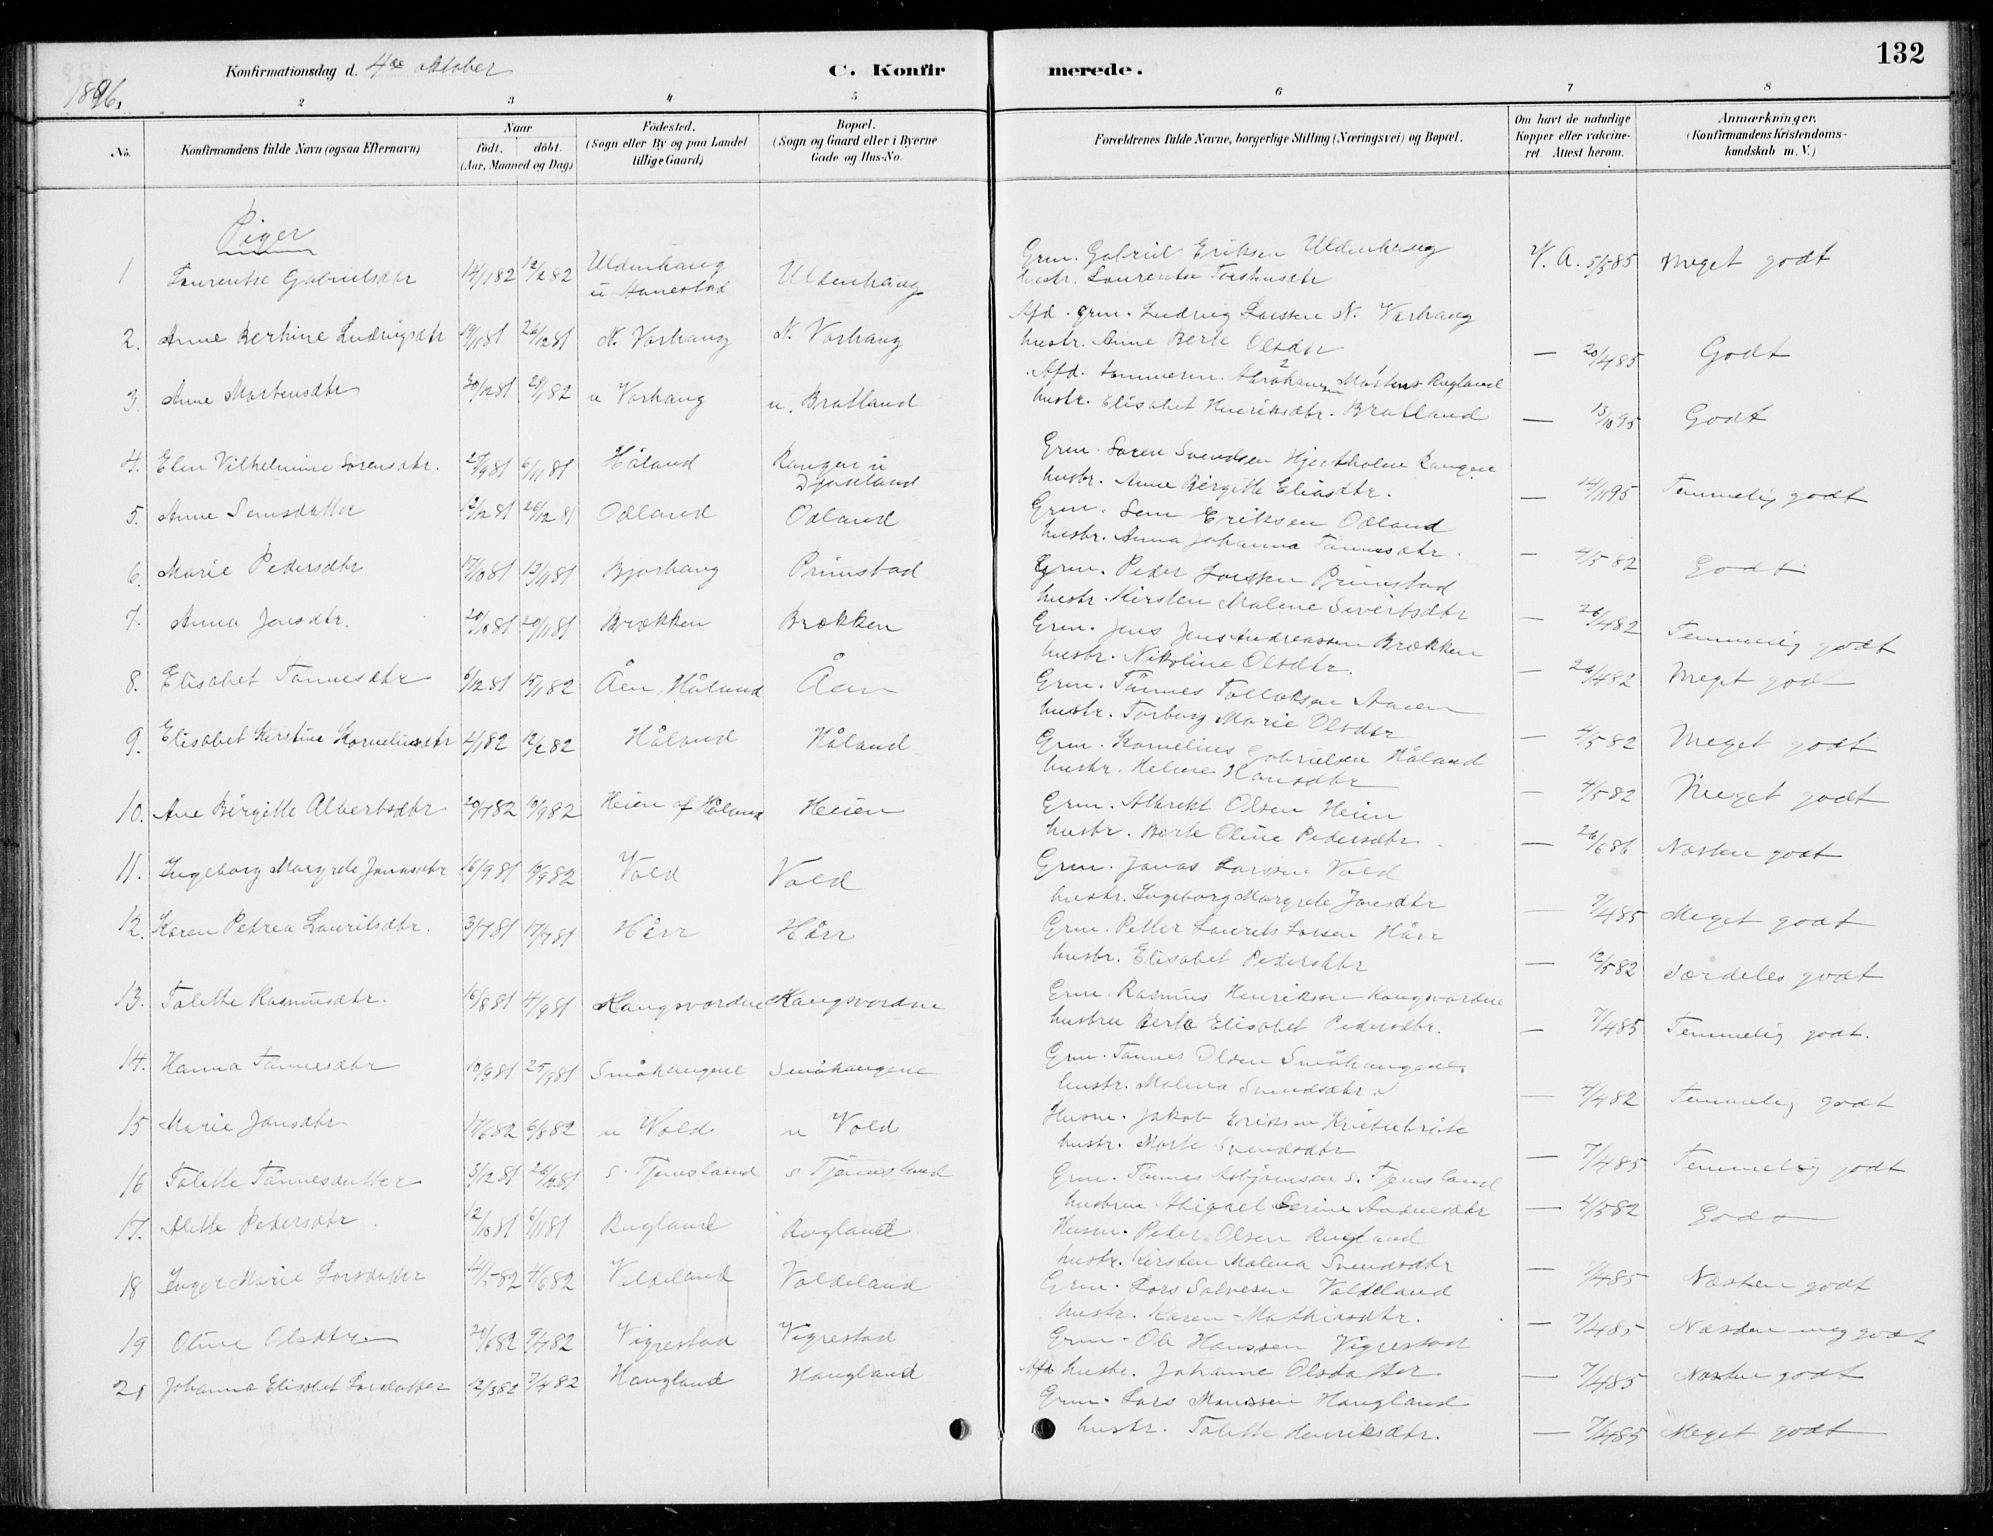 132
Konfirmationsdag d. 4de oktober
1896.
C. Konfirmerede.
2 3 4 5 6 7 8
No. Konfirmandens fulde Navn (ogsaa Efternavn)
Naar født. døbt. (Aar, Maaned og Dag)
Fødested. (Sogn eller By og paa Landet tillige Gaard)
Bopæl. (Sogn og Gaard eller i Byerne Gade og Hus-No.
Forældrenes fulde Navne, borgerlige Stilling (Næringsvei) og Bopæl.
Om havt de naturlige Kopper eller vakcineret. Attest herom.
Anmærkninger. (Konfirmandens Kristendomskundskab m. V.)
Piger
1 Laurentse Gabrielsdtr 14/1 82 12/2 82 Uldenhaug Uldenhaug
Grm. Gabriel Eriksen Uldenhaug
hustr. Laurentse V. A. 5/5 85 Meget godt
2. Anne Berthine Ludvigsdtr 19/11 81 26/12 81 N. Varhaug N. Varhaug
Afd. grm. Ludvig Larsen N. Varhaug
hustr. Anne Berte Olsdtr — 20/4 85 Godt
3. Anne Mortensdtr 30/12 81 29/1 82 u Varhaug u. Bratland
Afd. tømmerm. Abraham Morten Rugland
hustr. Elisabet Henriksdtr. Bratland — 13/10 95 Godt
4. Elen Vilhelmine Sørensdtr. 27/9 81 6/11 81 Håland
Grm. Søren Svendsen Hjertholm
hustr. Anne Birgitte Eliasdtr. — 14/11 95 Temmelig godt
5. Anne Semsdatter 12/12 81 26/12 81 Odland Odland
Grm. Sem Eriksen Odland
hustr. Anna Johanna Tønnesdtr. — 4/5 82 Godt
6. Marie Pedersdtr 17/10 81 13/11 81 Bjorhaug Primstad
Grm. Peder Larsen Primstad
hustr. Kirsten Malene Sivertsdtr — 26/4 82 Temmelig godt
7. Anna Jensdtr. 20/10 81 20/11 81 Brækken Brækken
Grm. Jens Jens Andreassen Brækken
hustr. Nikoline Olsdtr. — 26/4 82 Meget godt
8. Elisabet Tønnesdtr 6/12 81 15/1 82 Åen, Håland Åen
Grm. Tønnes Tollaksen Aaen
hustr. Torborg Marie Olsdtr — 4/5 82 Meget godt
9. Elisabet Kirstine Korneliusdtr 4/1 82 12/2 82 Håland Håland
Grm. Kornelius Gabrielsen Håland
hustr. Helene Hansdtr — 4/5 82 Meget godt
10. Ane Birgitte Albertsdtr 20/7 82 10/9 82 Heien af Håland Heien
Grm. Albrekt Olsen Heien
hustr. Berte Oline Pedersdtr — 26/6 86 Næsten godt
11. Ingeborg Margrete Jonasdtr Vold Vold
Grm. Jonas Larssen Vold
hustr. Ingeborg Margrete Jonsdtr — 7/4 85 Meget godt
12. Karen Petrea Lauritsdtr. 3/7 81 17/7 81 Hårr Hårr
Grm. Petter Laurits Larsen Hårr
hustr. Elisabet Pedersdtr — 12/5 82 Særdeles godt
13. Talette Rasmusdtr. 16/8 81 4/9 81 Kongsvordne Kongsvordne
Grm. Rasmus Henriksen Kongsvordne
hustru Berte Elisabet Pedersdtr. — 7/4 85 Temmelig godt.
14. Hanna Tønnesdtr 10/9 81 25/9 81 Småhaugene Småhaugene
Grm. Tønnes Olsen Småhaugene
hustr. Malena Svendsdtr — 4/4 82 Temmelig godt
15 Marie 6/8 82 u Vold u Vold
Husm. Jakob Eriksen
hustr. Marte Svendsdtr — 7/4 85 Temmelig godt
16 Talette Tønnesdatter 3/12 81 26/12 81 S. Tjemsland S Tjemsland
Grm. Tønnes Asbjørnsen S. Tjemsland
hustru Abigael Serine — 4/5 82 Godt
17. Alette Pedersdtr 12/10 81 6/11 81 Rugland Rugland
Husm. Peder Olsen Rugland
hustr. Kirsten Malena Svendsdtr — 7/4 85 Næsten godt
18 Inger Marie Larsdatter 14/5 82 4/6 82 Valdeland Valdeland
Grm. Lars Salvesen Valdeland
hustr. Karen Mathiasdtr. — 7/4 85 Næsten meg godt
19 Oline Olsdtr. 20/6 82 9/7 82 Vigrestad Vigrestad
Grm. Ole Hanssen Vigrestad
Afd. hustr. Johanne Olsdatter — 7/4 85 Næsten godt
20 Johanna Elisabet Larsdatter 12/3 82 7/4 82 Haugland Haugland
Grm. Lars Monssen Haugland
hustr. Talette Henriksdtr. — 7/4 85 Meget godt